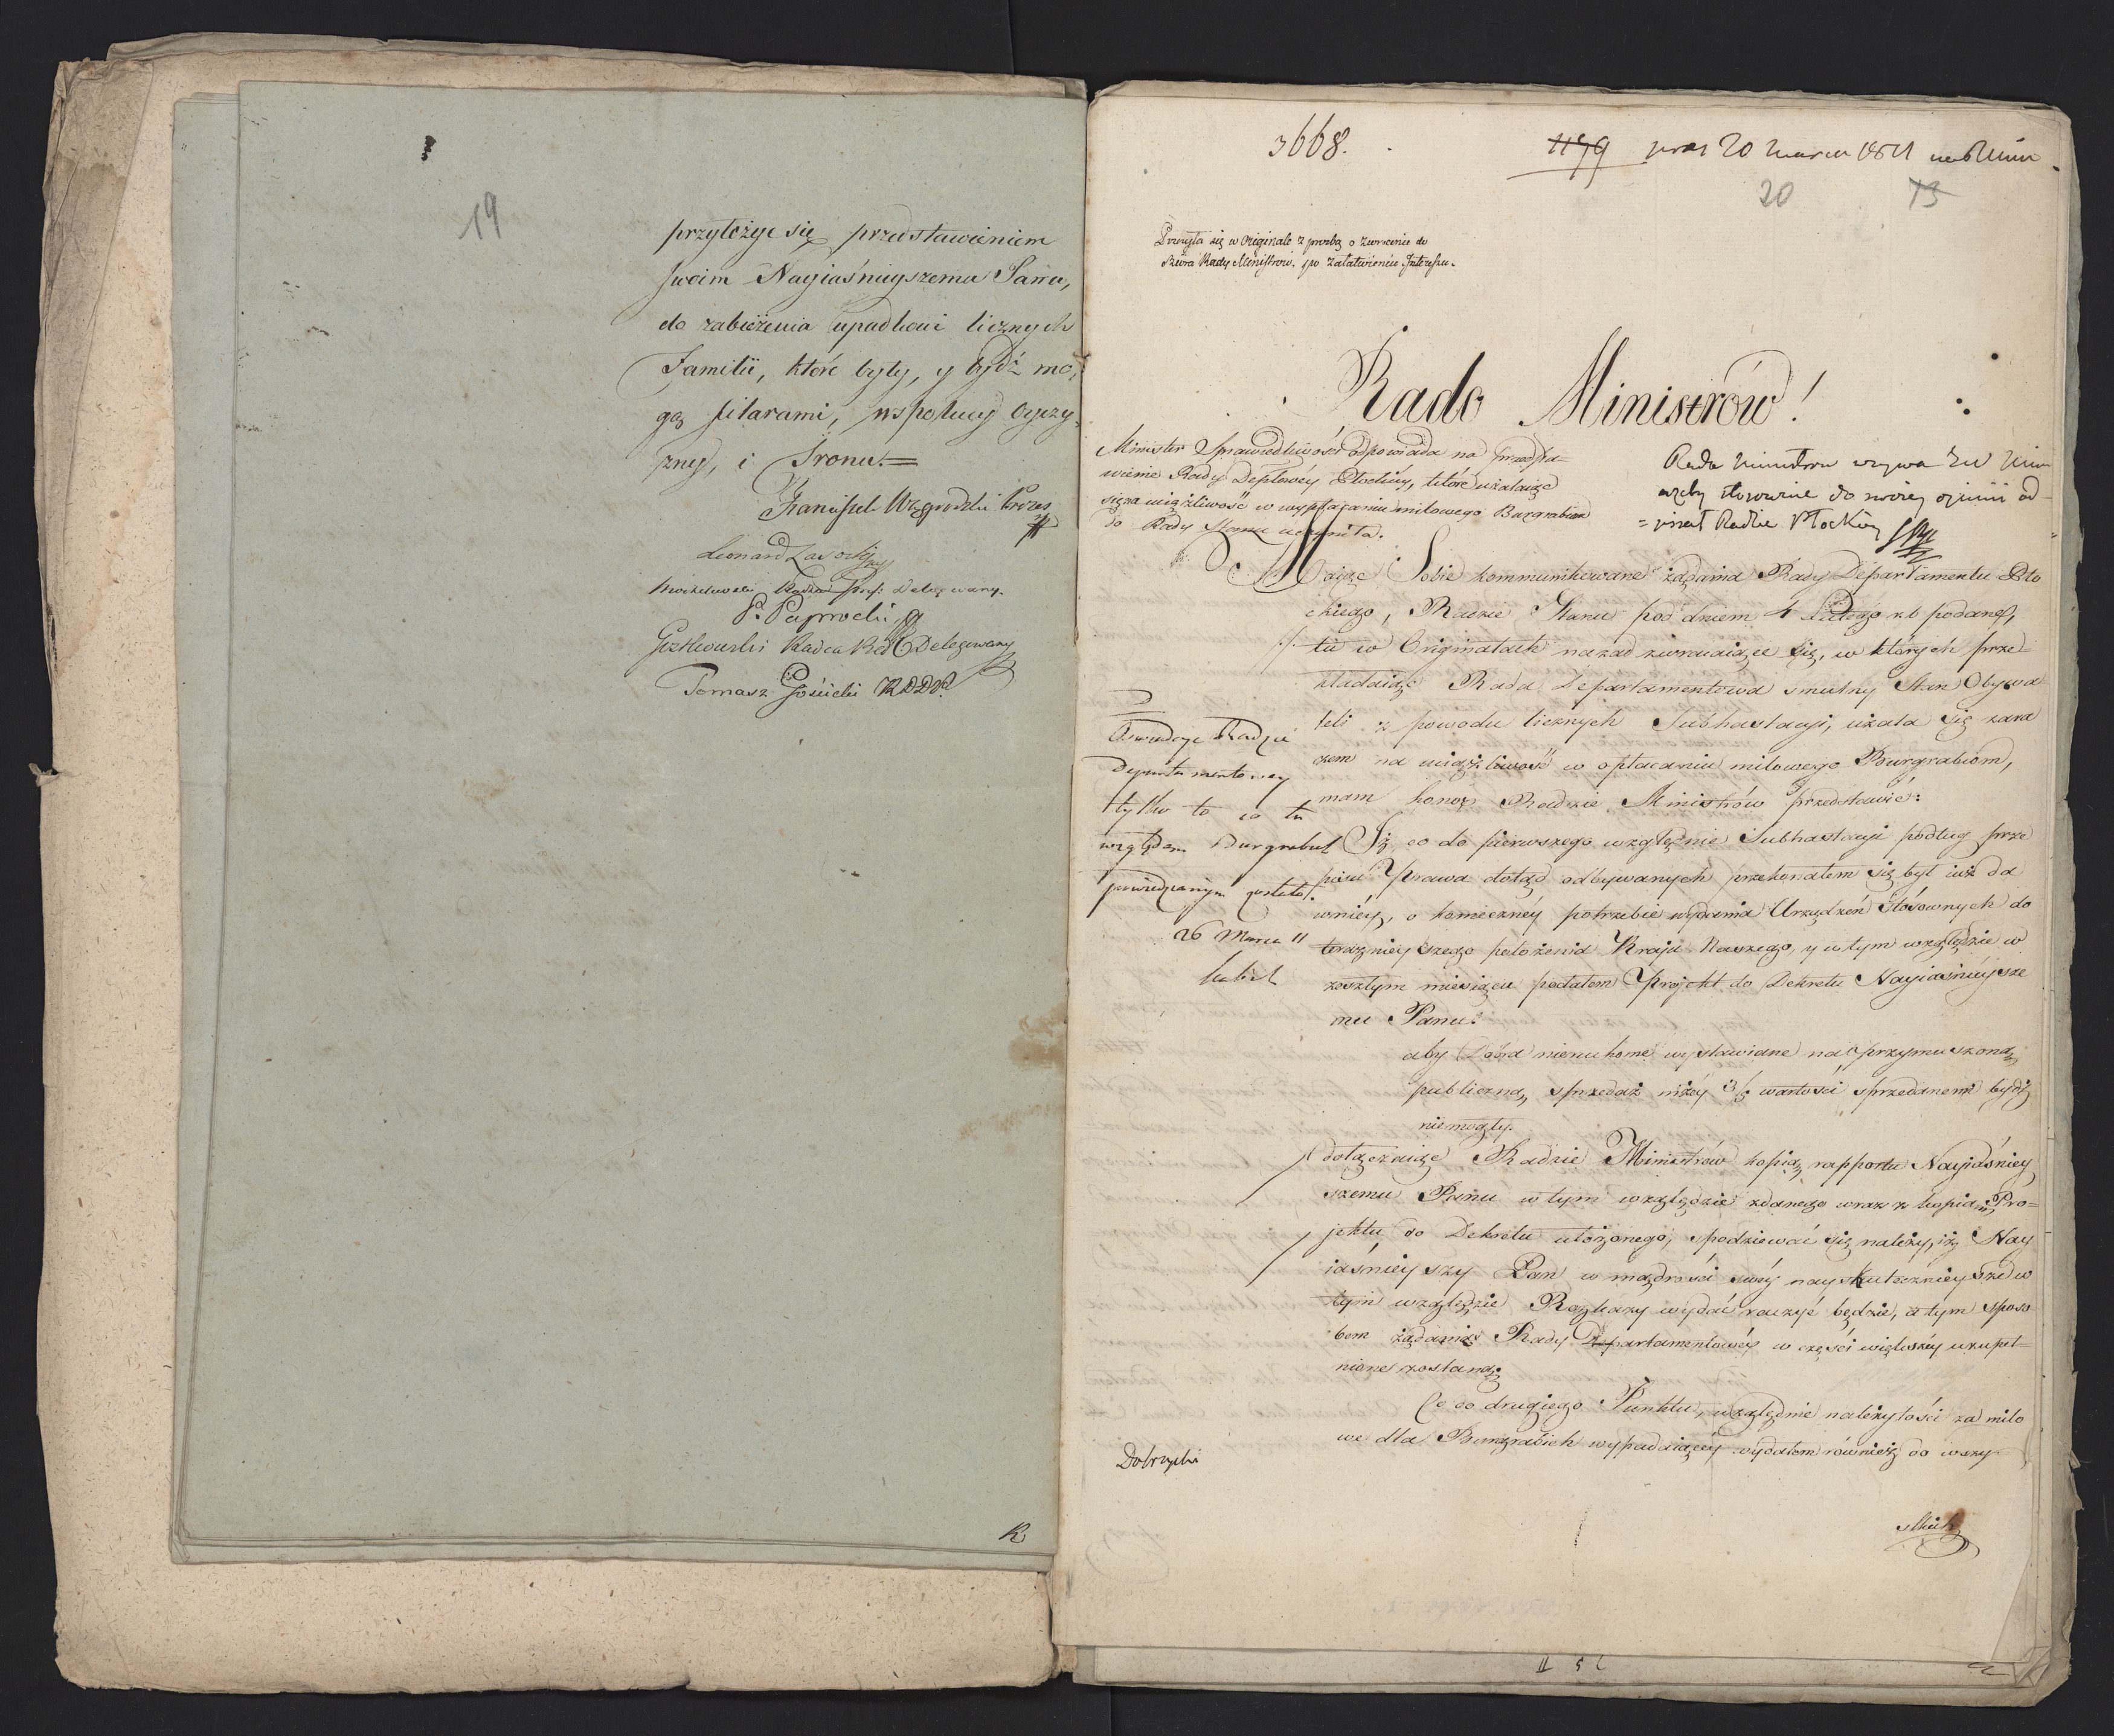 19
przyłożyć się przedstawieniem
swoim Nayiaśnieyszemu Panu,
do zabieżenia upadkowi licznych
Familii, które były, y bydź mo,
gą filarami, wspólney Oyczy,
zney, i Tronu.=
Franciszek Wzgrodzki Prezes
Leonard Lasocki
Radca Pref: Delegowany.
P. Paprocki
Radca Delegowany
Tomasz Gościcki RDDP.
K
3668.
1179 20 Marca 1811
20 73
Przesyła się w Originale z prozbą o zwrocenie do
Biora Rady Ministrow, po załatwieniu Interessu.
Rado Ministrów!
Minister Sprawiedliwości odpowiada na przedsta-
wienie Rady Deptowéy Płockiéy, które użalaiąc
się na uciążliwość w wypłacaniu milowego Burgrabiom
do Rady Stanu uczyniła.
Rada Ministrow wzywa
ażeby stosownie do swoiey opinii od-
=pisał Radzie Płockiey
Maiąc Sobie kommunikowane żądania Rady Departamentu Pło
ckiego, Radzie Stanu pod dniem 4 Lutego r.b podane,
./. tu w Originałach nazad zwracaiące się, w których prze-
kładaiąc Rada Departamentowa smutny Stan Obywa
teli z powodu licznych Subhastacyi, użala się zara
zem na uciążliwość w opłacaniu milowego Burgrabiom,
mam honor Radzie Ministrów przedstawić:
Oswiadczyć Radzie
Departamentowey
tylko to co tu
względem Burgrabiow
powiedzianym zostało.
26 Marca 11
Iż, co do pierwszego względnie Subhastacyi podług prze
pisu Prawa dotąd odbywanych przekonałem się był iuż da
wniéy, o konieczney potrzebie wydania Urządzeń stósownych do
teraznieyszego położenia Kraju Naszego, y w tym względzie w
zeszłym miesiącu podałem Projekt do Dekretu Nayiaśnieysze
mu Panu:
aby Dobra nieruchome wystawiane na przymuszoną
publiczną sprzedaż niżéy 3/5 wartości sprzedanemi bydź
niemogły.
dołączaiąc Radzie Ministrów kopią rapportu Nayiaśniey
szemu Panu w tym względzie zdanego wraz z kopią Pro=
jektu do Dekretu ułożonego, spodziewać się należy, iż Nay
iaśnieyszy Pan w mądrości swéy nayskutecznieysze w
tym względzie Rozkazy wydać raczyć będzie, a tym sposo
bem żądania Rady Departamentowéy w części większéy uzupeł-
nione zostaną.
Co do drugiego Punktu, względnie należytości za milo
we dla Burgrabich wypadaiącéy wydałem również do wszy
Dobrzycki
stkich